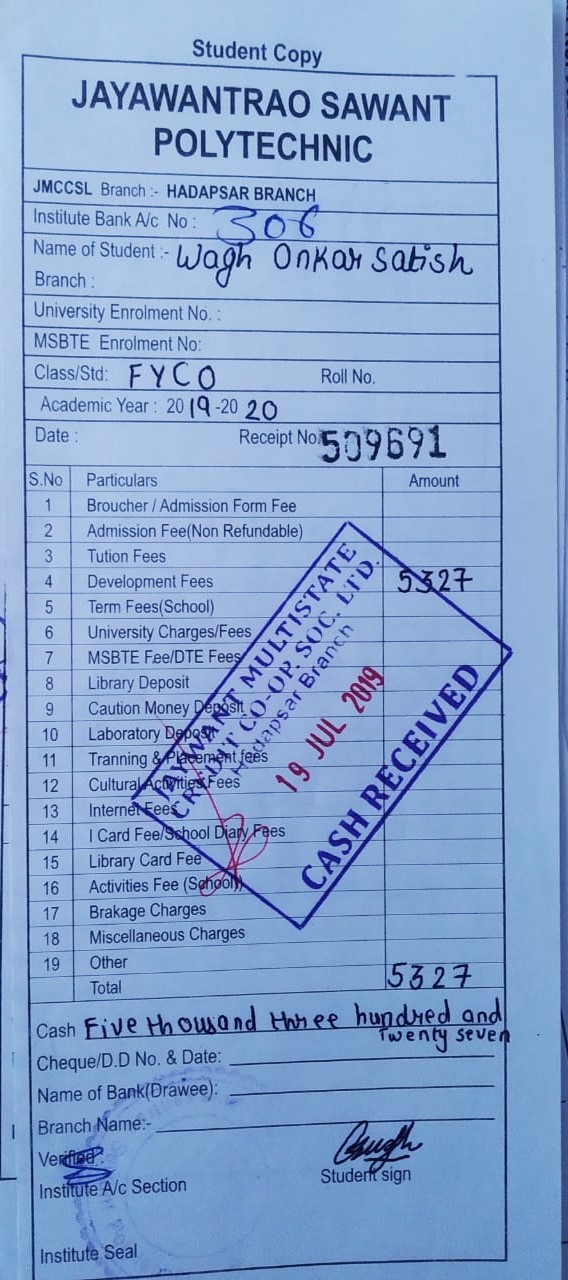 Student Copy
JAYAWANTRAO SAWANT
POLYTECHNIC
JMCCSL Branch :- HADAPSAR BRANCH
Institute Bank A/c No : 306
Name of Student :- Wagh Onkar Satish
Branch :
University Enrolment No. :
MSBTE Enrolment No:
Class/Std: FYCO Roll No.
Academic Year : 2019-2020
Date : Receipt No. 509691
S.No Particulars Amount
1 Broucher / Admission Form Fee
2 Admission Fee(Non Refundable)
3 Tution Fees
4 Development Fees 5327
5 Term Fees(School)
6 University Charges/Fees
7 MSBTE Fee/DTE Fees
8 Library Deposit
9 Caution Money Deposit
10 Laboratory Deposit
11 Tranning & Placement fees
12 Cultural Activities Fees
13 Internet Fees
14 I Card Fee/School Diary Fees
15 Library Card Fee
16 Activities Fee (School)
17 Brakage Charges
18 Miscellaneous Charges
19 Other
Total 5327
JAYWANT MULTISTATE
CREDIT CO-OP. SOC. LTD.
Hadapsar Branch
19 JUL 2019
CASH RECEIVED
Cash Five thousand three hundred and
Twenty seven
Cheque/D.D No. & Date:
Name of Bank(Drawee):
Branch Name:-
Verified :
Institute A/c Section Student sign
Institute Seal